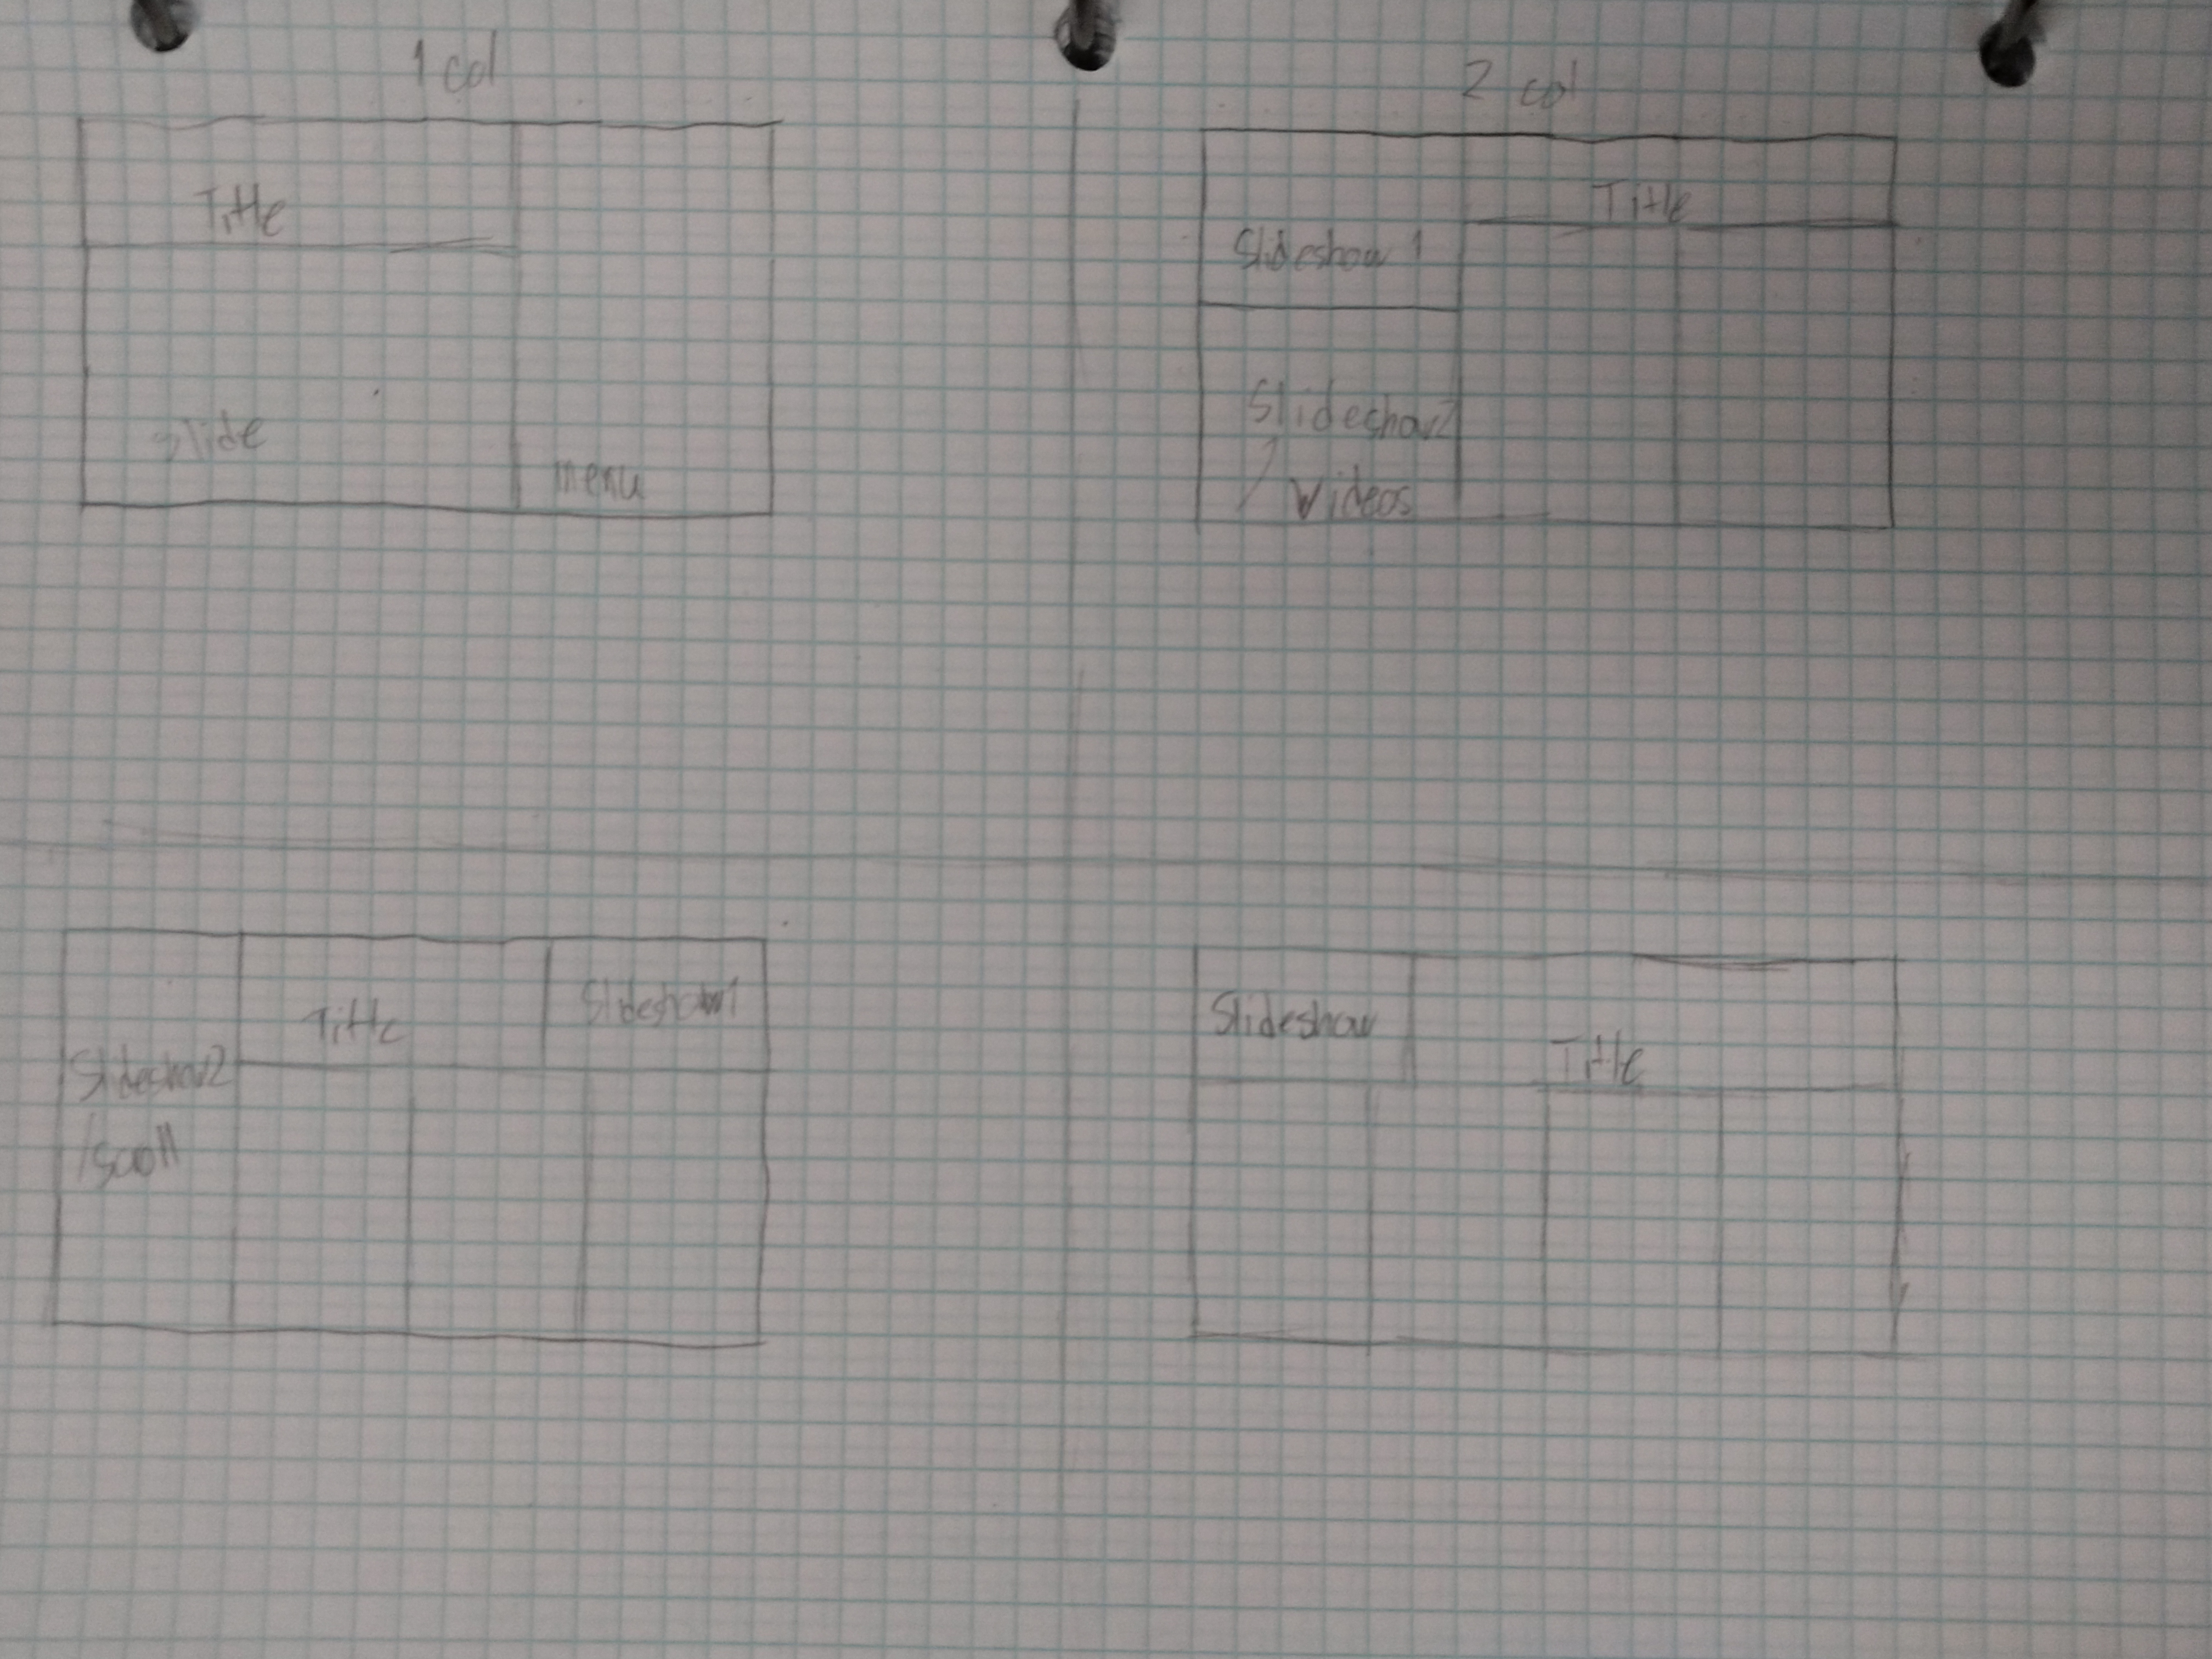 1 col
Title
slide
menu
2 col
Title
Slideshow 1
Slideshow2
Videos
Title
Slideshow1
Slideshow2
/scroll
Slideshow
Title